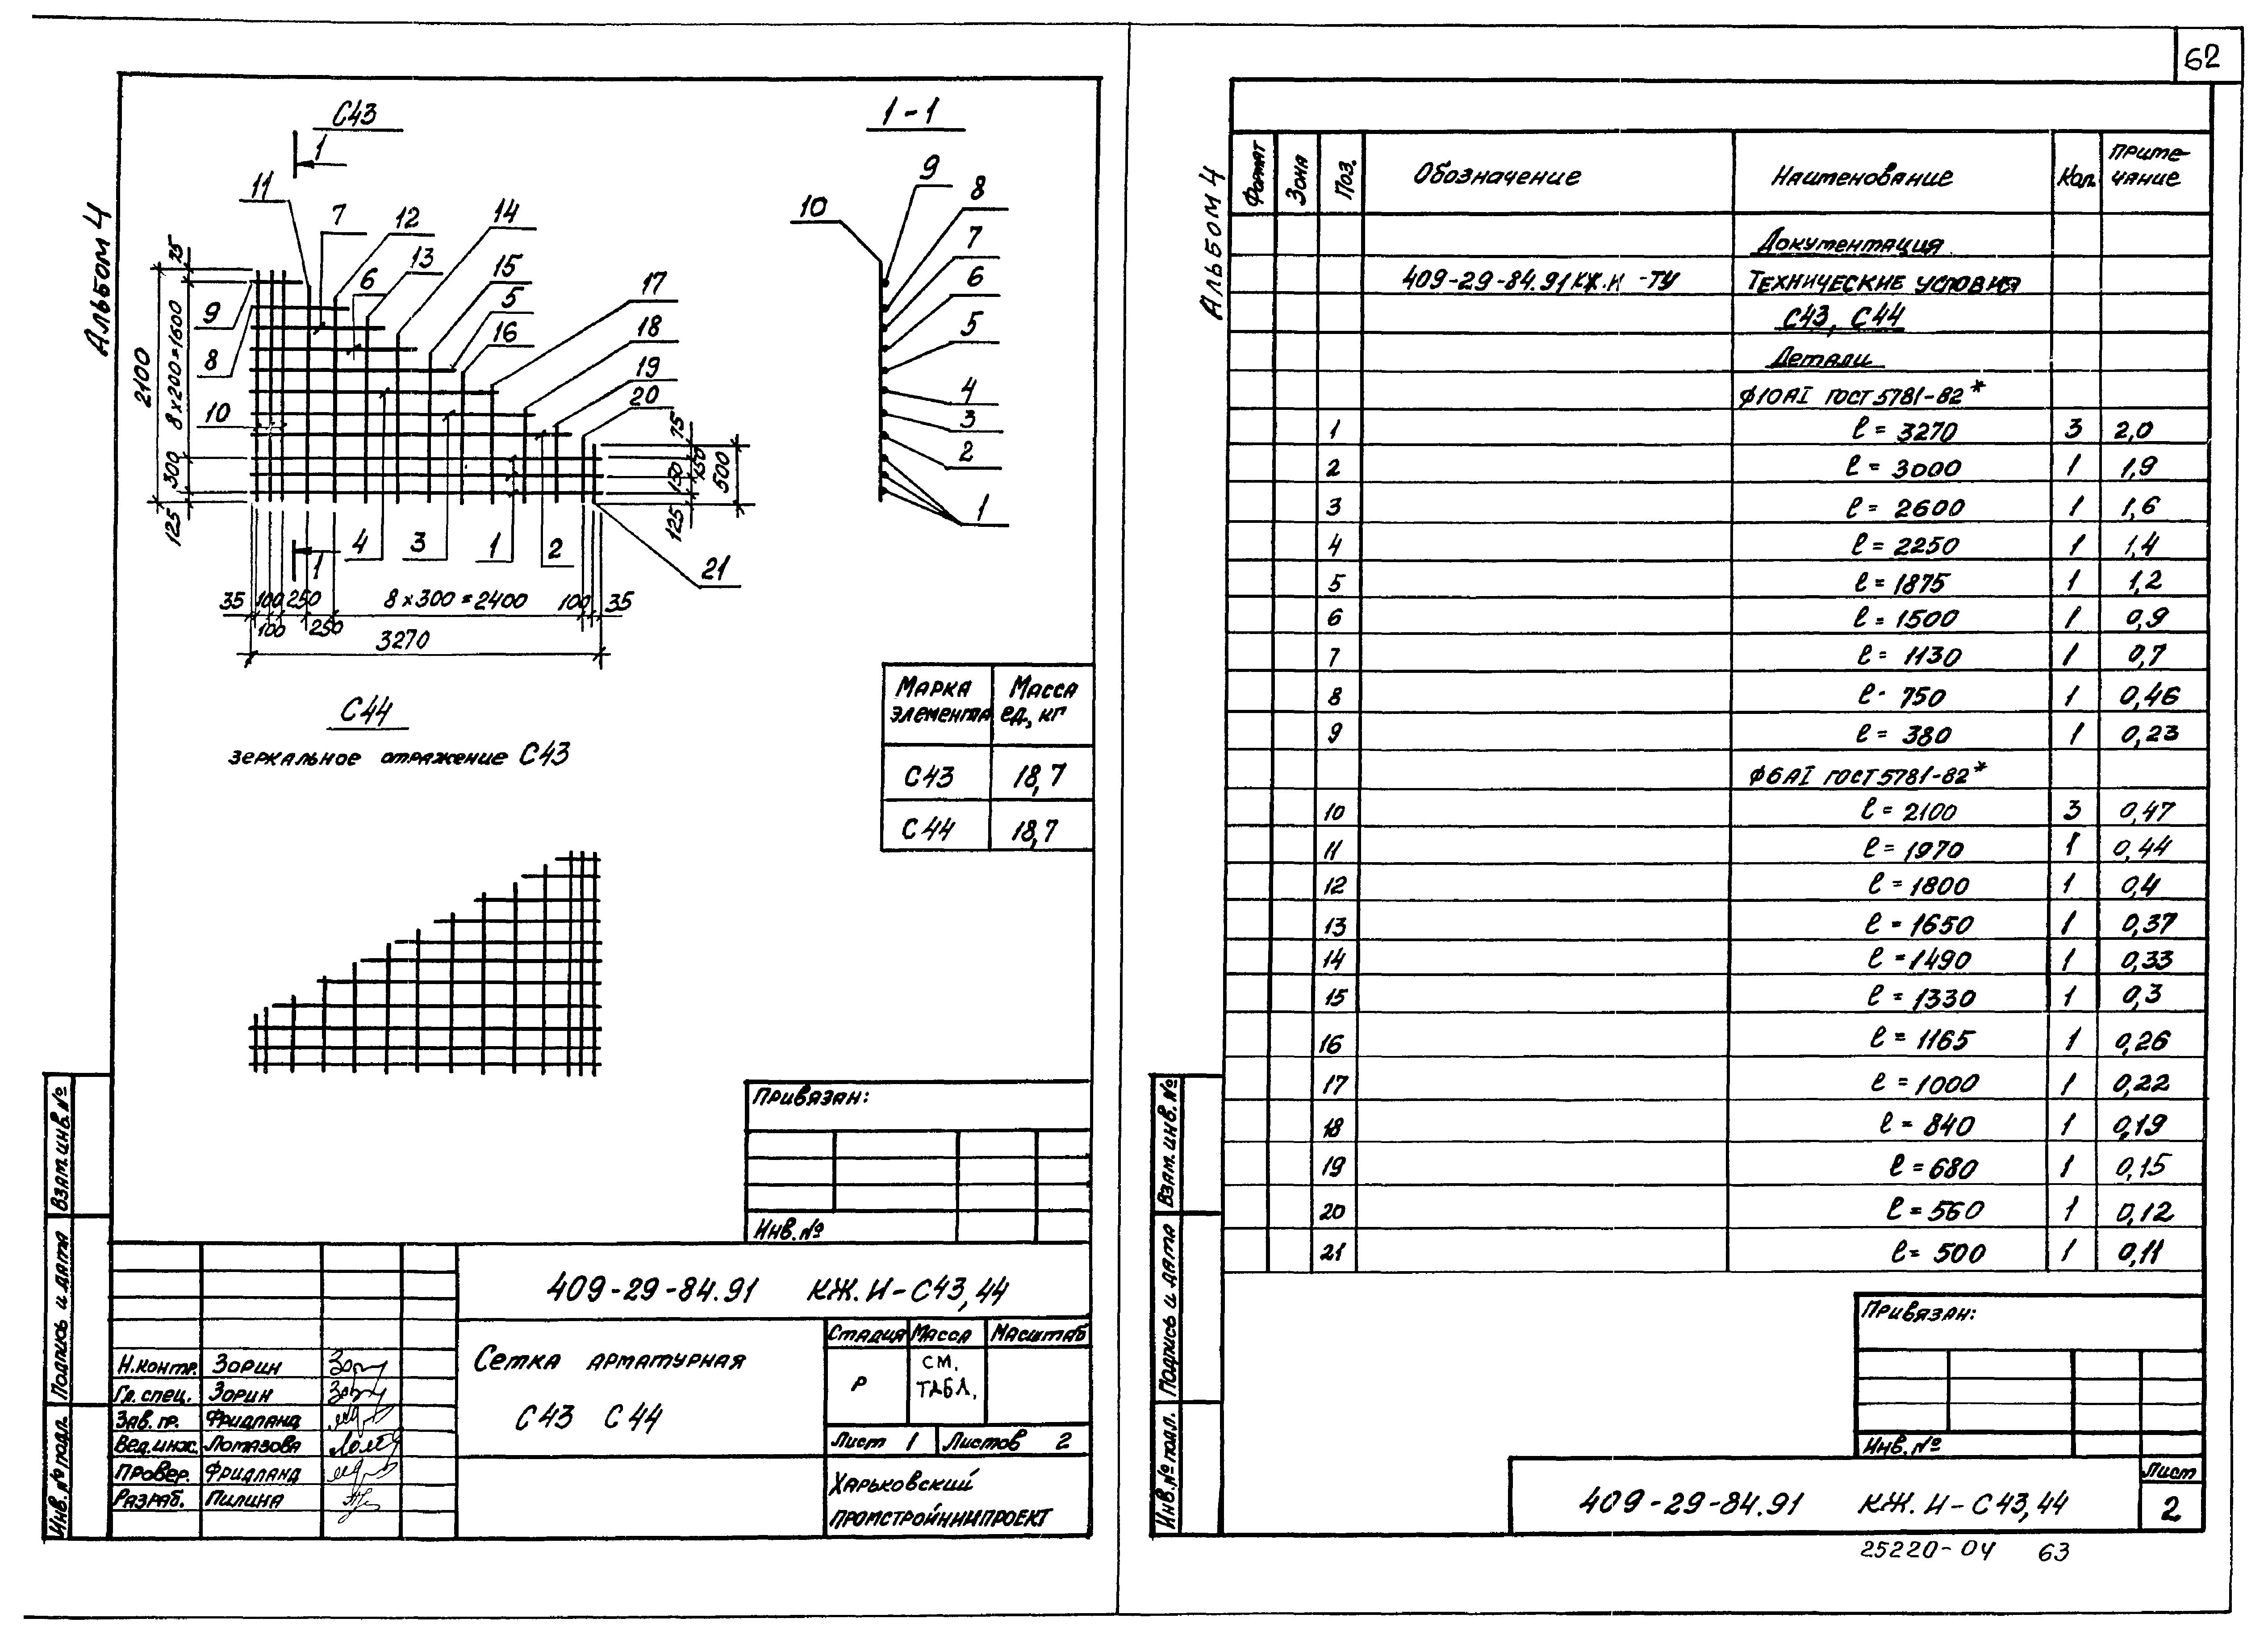 62
Альбом 4
С43
1
11
7
12
14
13
6
15
5
17
16
18
19
20
9
8
10
75
2100
8х200=1600
300
125
75
150
150
125
500
4
3
1
2
21
1
35
100
250
8х300=2400
100
35
100
250
3270
1-1
9
8
10
7
6
5
4
3
2
1
С44
зеркальное отражение С43
Марка элемента
Масса ед., кг
С43 18,7
С44 18,7
Привязан:
Инв. №
409-29-84.91 КЖ.И-С43,44
Сетка арматурная
С43 С44
Стадия Масса Масштаб
Р см. табл.
Лист 1 Листов 2
Харьковский
ПРОМСТРОЙНИИПРОЕКТ
Н.контр. Зорин
Гл. спец. Зорин
Зав. гр. Фридланд
Вед.инж. Ломазова
Провер. Фридланд
Разраб. Пилина
Взам. инв. №
Подпись и дата
Инв. № подл.
Альбом 4
Формат Зона Поз. Обозначение Наименование Кол. Приме-чание
Документация
409-29-84.91 КЖ.И -ТУ Технические условия
С43, С44
Детали
ф10АI ГОСТ 5781-82*
1 ℓ = 3270 3 2,0
2 ℓ = 3000 1 1,9
3 ℓ = 2600 1 1,6
4 ℓ = 2250 1 1,4
5 ℓ = 1875 1 1,2
6 ℓ = 1500 1 0,9
7 ℓ = 1130 1 0,7
8 ℓ - 750 1 0,46
9 ℓ = 380 1 0,23
ф6АI ГОСТ 5781-82*
10 ℓ = 2100 3 0,47
11 ℓ = 1970 1 0,44
12 ℓ = 1800 1 0,4
13 ℓ = 1650 1 0,37
14 ℓ = 1490 1 0,33
15 ℓ = 1330 1 0,3
16 ℓ = 1165 1 0,26
17 ℓ = 1000 1 0,22
18 ℓ = 840 1 0,19
19 ℓ = 680 1 0,15
20 ℓ = 560 1 0,12
21 ℓ = 500 1 0,11
Привязан:
Инв. №
409-29-84.91 КЖ.И-С43,44
Лист
2
Взам. инв. №
Подпись и дата
Инв. № подл.
25220-04 63